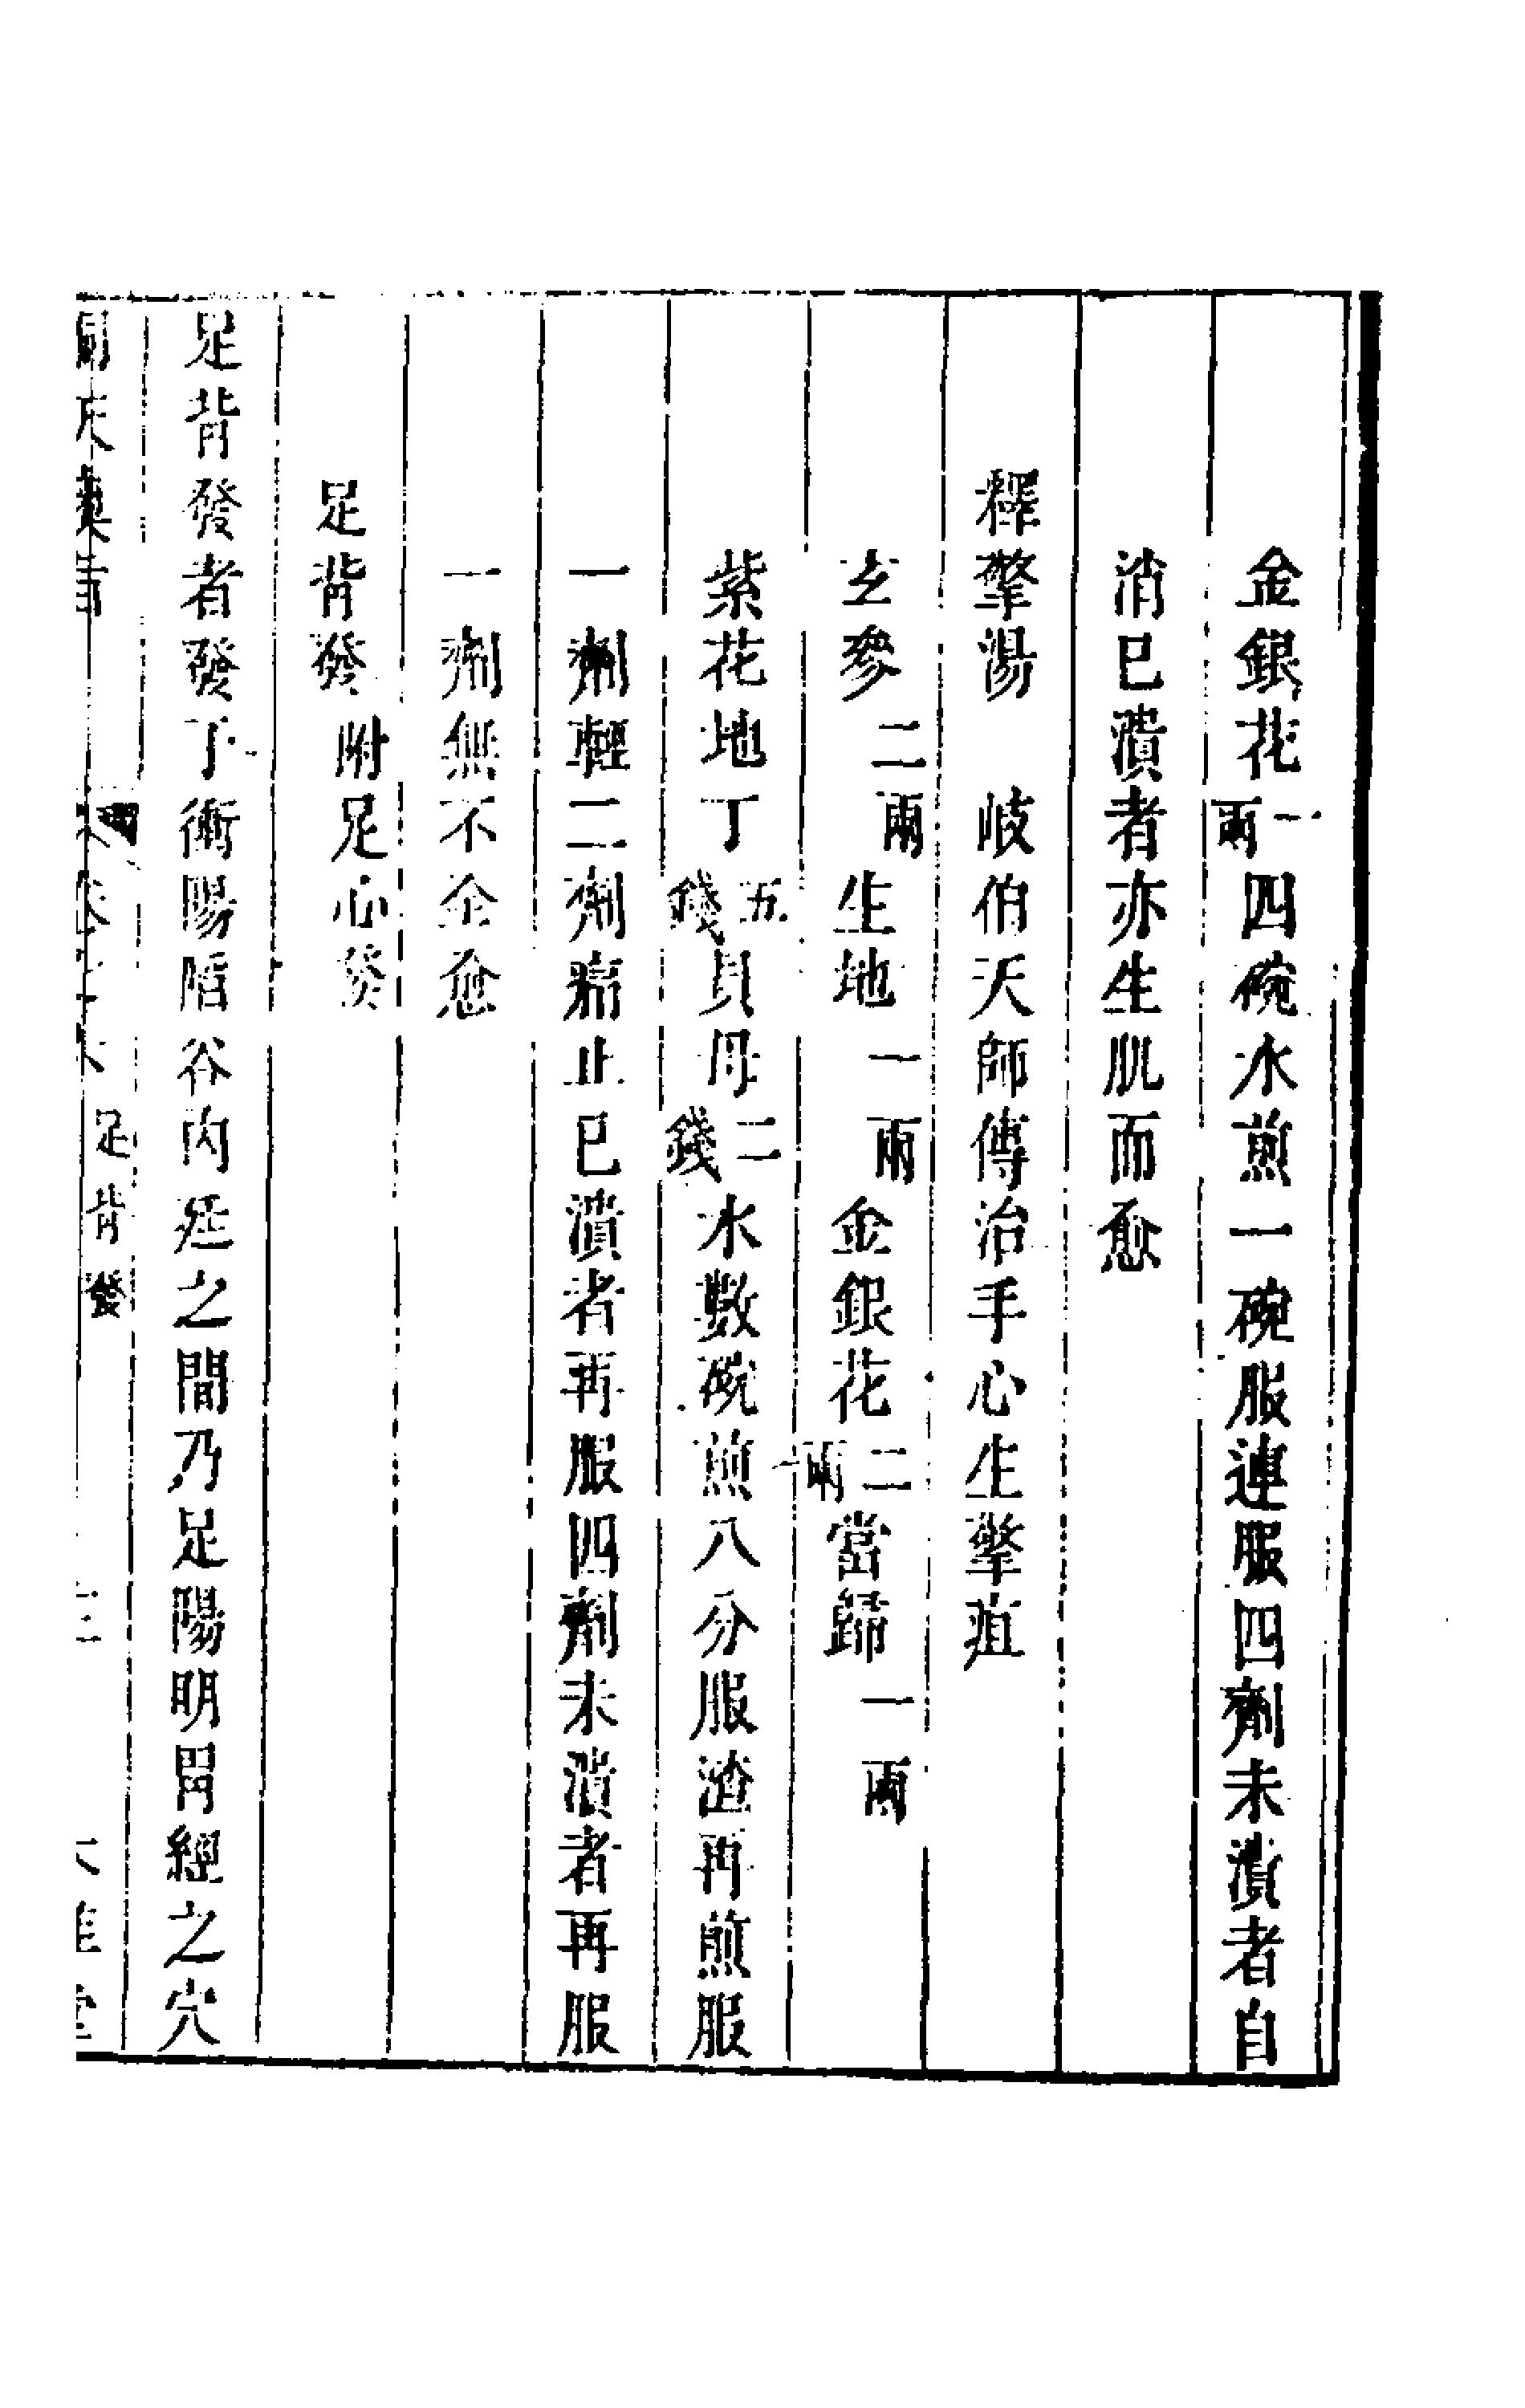 金銀花一兩四碗水煎一碗服連服四劑未潰者自
消已潰者亦生肌而愈
釋擎湯　岐伯天師傳治手心生擎疽
玄參二兩生地一兩金銀花二兩當歸一兩
紫花地丁五錢貝母二錢水數碗煎八分服渣再煎服
一劑輕二劑痛止已潰者再服四劑未潰者再服
一劑無不全愈
足背發附足心發
足背發者發于衝陽陷谷內廷之間乃足陽明胃經之穴
洞天奧旨　足背發